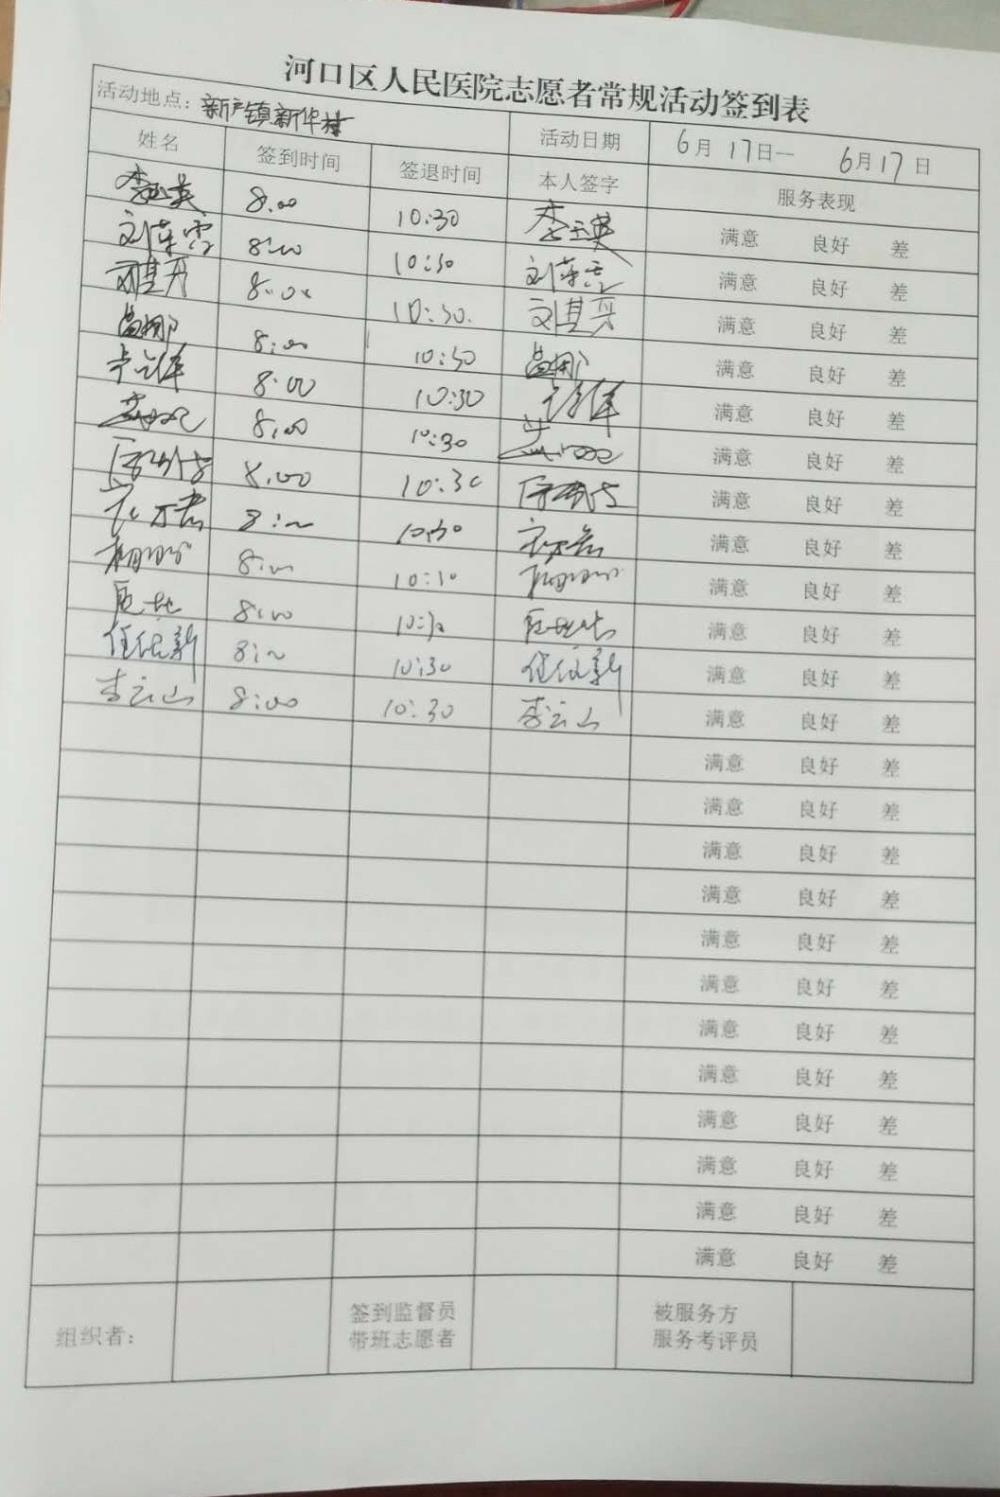 河口区人民医院志愿者常规活动签到表
活动地点：新户镇新华村 活动日期 6月17日一 6月17日
姓名 签到时间 签退时间 本人签字 服务表现
李玉英 8:00 10:30 李玉英 满意 良好 差
8:00 10:30 满意 良好 差
刘其丹 8:00 10:30. 刘其丹 满意 良好 差
8:00 10:30 满意 良好 差
8:00 10:30 满意 良好 差
8:00 10:30 满意 良好 差
8:00 10:30 满意 良好 差
8:00 10:30 满意 良好 差
8:00 满意 良好 差
8:00 10:30 满意 良好 差
8:00 10:30 满意 良好 差
李云山 8:00 10:30 李云山 满意 良好 差
满意 良好 差
满意 良好 差
满意 良好 差
满意 良好 差
满意 良好 差
满意 良好 差
满意 良好 差
满意 良好 差
满意 良好 差
满意 良好 差
满意 良好 差
满意 良好 差
组织者： 签到监督员 被服务方
带班志愿者 服务考评员